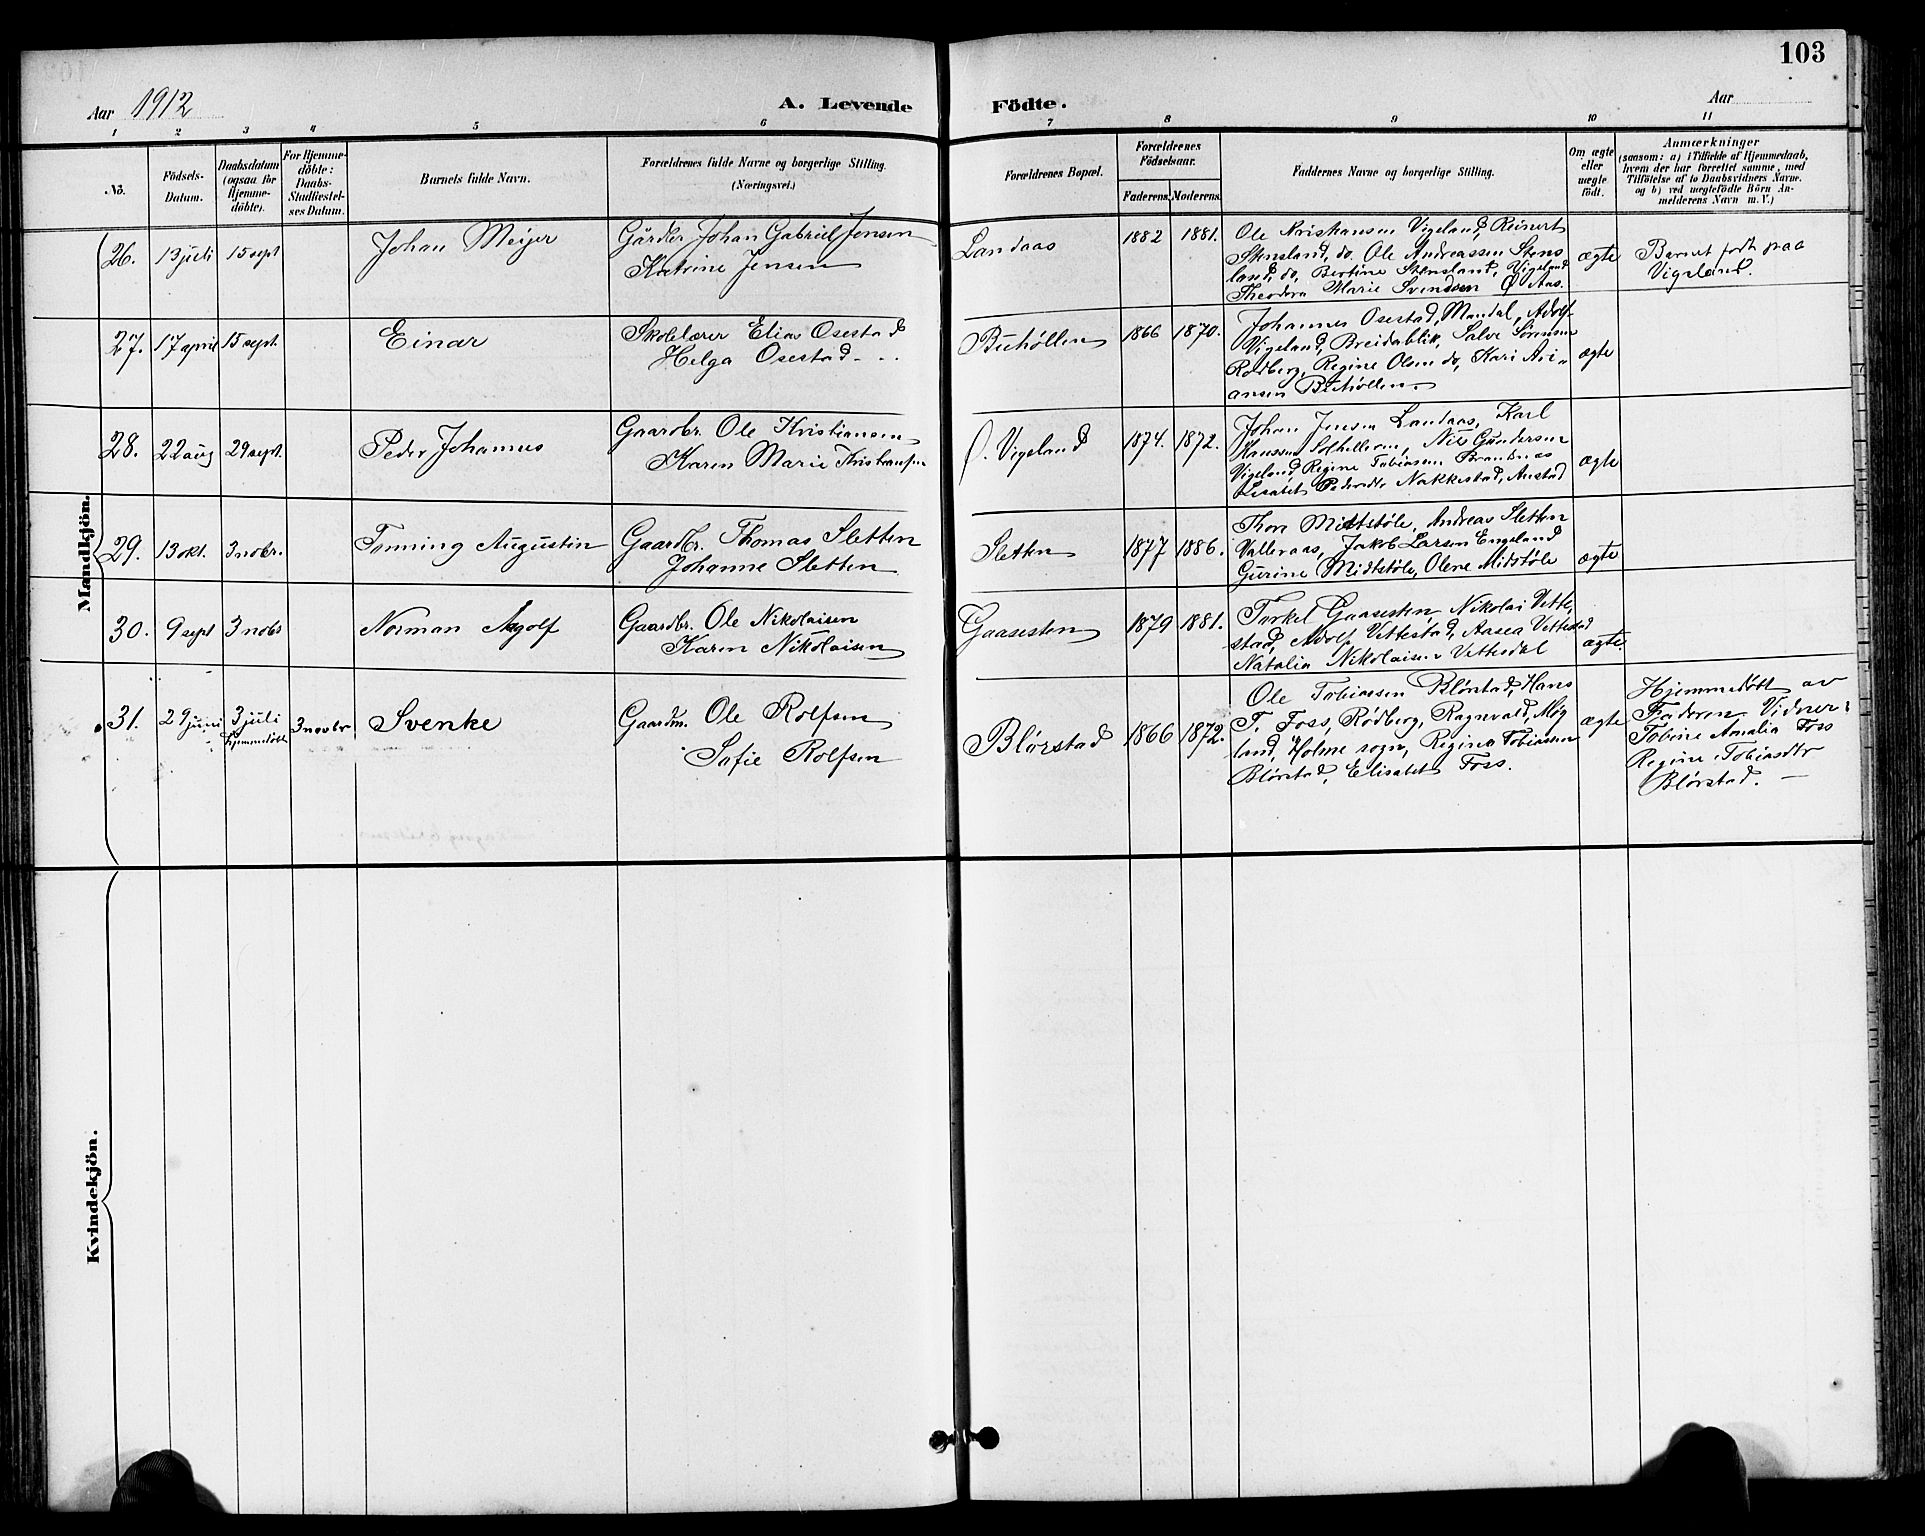 103
Aar 1912
A. Levende Födte.
Aar
1 2 3 4 5 6 7 8 9 10 11
No.
Födsels-
Datum.
Daabsdatum
(ogsaa for
Hjemme-
döbte).
For Hjemme-
döbte:
Daabs-
Stadfæstel-
ses Datum.
Barnets fulde Navn.
Forældrenes fulde Navne og borgerlige Stilling.
(Næringsvei.)
Forældrenes Bopæl.
Forældrenes
Födselsaar.
Faderens. Moderens.
Faddernes Navne og borgerlige Stilling.
Om ægte
eller
uægte
födt.
Anmærkninger
(saasom: a) i Tilfælde af Hjemmedaab,
hvem der har forrettet samme, med
Tilföielse af to Daabsvidners Navne.
og b) ved uægtefödte Börn An-
melderens Navn m. V.)
Mandkjön.
26. 13 juli 15 sept Johan Meijer
Gårdbr Johan Gabriel Jensen
Katrine Jensen
Landaas 1882 1881.
Ole Kristiansen Vigeland, Reinert
Stensland, do. Ole Andreassen Stens
land, do, Bertine Stensland, Vigeland
Theodora Marie Svendsen Ø Aas.
ægte
Barnet født paa
Vigeland.
27. 17 april 15 sept. Einar
Skolelærer Elias Osestad
Helga Osestad
Buhøllen 1866 1870.
Johannes Osestad, Mandal, Adolf
Vigeland, Breidablik, Salve Sørensen
Rødberg, Regine Olsen do, Kari Ari-
ansen Buhøllen.
ægte
28. 22 aug 29 sept. Peder Johannes
Gaardbr. Ole Kristiansen
Karen Marie Kristiansen
Ø. Vigeland 1874. 1872.
Johan Jensen Landaas, Karl
Hanssen Nils Gundersen
Vigeland, Regine Tobiasen
Lisabet Nakkestad,
ægte
29. 13 okt. 3 nobr. Tønning Augustin
Gaardbr. Thomas Sletten
Johanne Sletten
Sletten 1877 1886.
Thore Midtstøle, Andreas Sletten
Valleraas, Jakob Larsen Engeland
Gurine Midtstøle, Olene Midstøle
ægte
30. 9 sept 3 nobr Norman Agolf
Gaardbr. Ole Nikolaisen
Karen Nikolaisen
Gaasesten 1879 1881.
Torkel Gaasesten, Nikolai Vette-
stad, Adolf Vettestad, Aasea Vettestad
Natalia Nikolaisen Vettesdal
ægte
31. 29 juni 3 juli
hjemmedøbt 3 novbr Svenke
Gaardm. Ole Rolfsen
Sofie Rolfsen
Blørstad 1866 1872.
Ole Tobiassen Blørstad, Hans
T. Foss, Rødberg, Ragnvald, Møg
land, Holme sogn, Regine Tobiassen
Blørstad, Elisabet Foss.
ægte
Hjemmedøbt av
Faderen Vidner:
Tobine Amalia Foss
Regine Tobiasdtr
Blørstad. —
Kvindekjön.